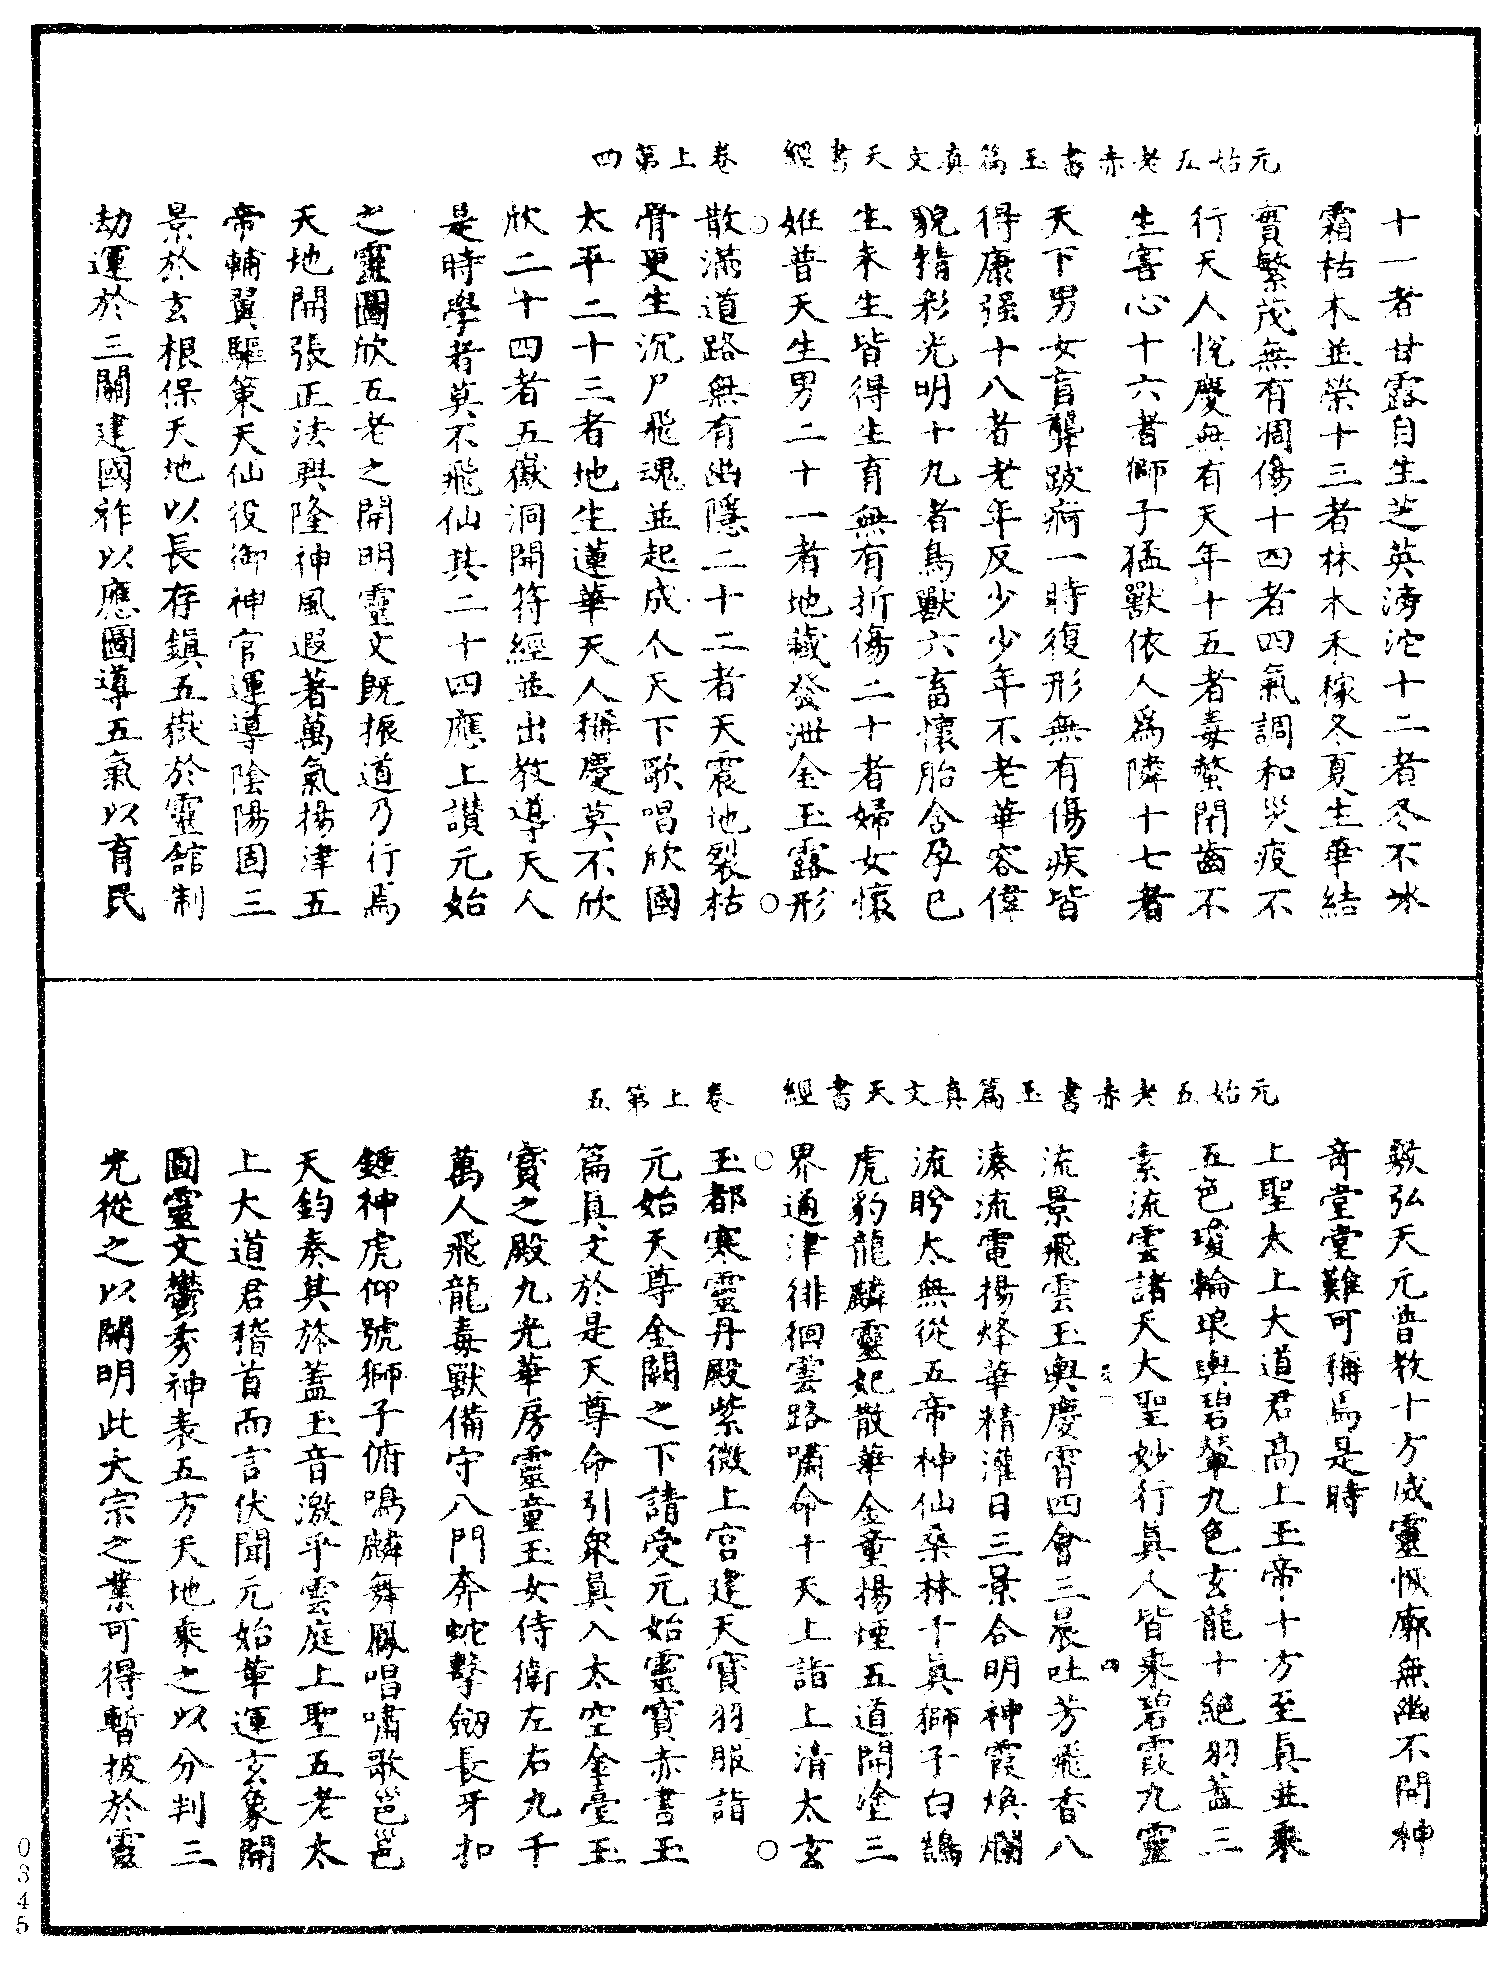 元始五老赤書玉篇真文天書經　卷上第四
十一者甘露自生芝英滂沱十二者冬不冰
霜枯木並榮十三者林木禾稼冬夏生華結
實繁茂無有凋傷十四者四氣調和災疫不
行天人悅慶無有夭年十五者毒螫閉齒不
生害心十六者獅子猛獸依人為隣十七者
天下男女盲聾跛痾一時復形無有傷疾皆
得康强十八者老年反少少年不老華容偉
貌精彩光明十九者鳥獸六畜懷胎含孕已
生未生皆得生育無有折傷二十者婦女懷
姙普天生男二十一者地藏發泄金玉露形
散滿道路無有幽隱二十二者天震地裂枯
骨更生沉尸飛魂並起成人天下歌唱欣國
太平二十三者地生蓮華天人稱慶莫不欣
欣二十四者五嶽洞開符經並出教導天人
是時學者莫不飛仙其二十四應上讚元始
之靈圖欣五老之開明靈文旣振道乃行焉
天地開張正法興隆神風遐著萬氣揚津五
帝輔翼驅策天仙役御神官運導陰陽固三
景於玄根保天地以長存鎮五嶽於靈館制
劫運於三關建國祚以應圖導五氣以育民
元始五老赤書玉篇真文天書經　卷上第五
敷弘天元普教十方威靈恢廓無幽不開神
奇堂堂難可稱焉是時
上聖太上大道君高上玉帝十方至真並乘
五色瓊輪琅輿碧輦九色玄龍十絕羽蓋三
素流雲諸天大聖妙行真人皆乘碧霞九靈
流景飛雲玉輿慶霄四會三晨吐芳飛香八
湊流電揚烽華精灌日三景合明神霞煥爛
流眄太無從五帝神仙桑林千真獅子白鵠
虎豹龍麟靈妃散華金童揚煙五道開塗三
界通津徘徊雲路嘯命十天上詣上清太玄
玉都寒靈丹殿紫微上宮建天寶羽服詣
元始天尊金闕之下請受元始靈寶赤書玉
篇真文於是天尊命引衆真入太空金臺玉
寶之殿九光華房靈童玉女侍衛左右九千
萬人飛龍毒獸備守八門奔蛇擊劒長牙扣
鍾神虎仰號獅子俯鳴麟舞鳳唱嘯歌邕邕
天鈞奏其旍蓋玉音激乎雲庭上聖五老太
上大道君稽首而言伏聞元始革運玄象開
圖靈文鬱秀神表五方天地乘之以分判三
光從之以開明此大宗之業可得暫披於靈
0345